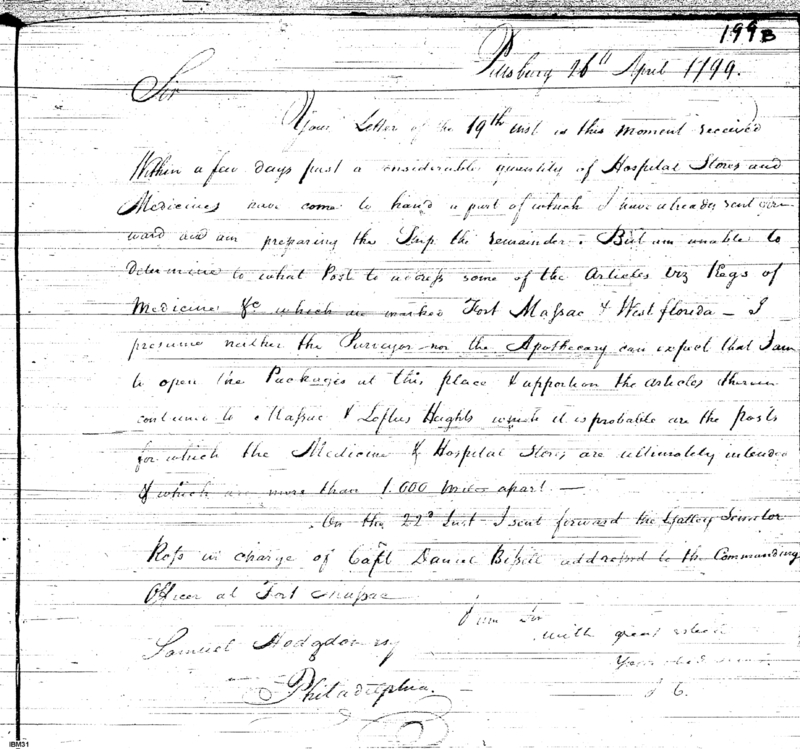 199B
Pittsburg 26th April 1799.
Sir
Your Letter of the 19th inst is this moment received
Within a few days past a considerable quantity of Hospital Stores and
Medicines have come to hand a part of which I have already sent
ward and am preparing the the remainder. But am unable to
determine to what Post to address some of the Articles viz Kegs of
Medicine &c which are marked Fort Massac & West florida – I
presume neither the Purveyor nor the Apothecary can expect that I am
to open the Packages at this place & apportion the articles therein
contained to Massac & Loftus Heights which it is probable are the posts
for which the Medicine & Hospital Stores are ultimately intended
& which are more than 1.000 miles apart. —
On the 22d Inst I sent forward the Galley Senator
Ross in charge of Capt Daniel Bissell addressed to the Commanding
Officer at Fort Massac
I am Sir
with great esteem
Samuel Hodgdon Esq
Your
Philadelphia.
IBM31